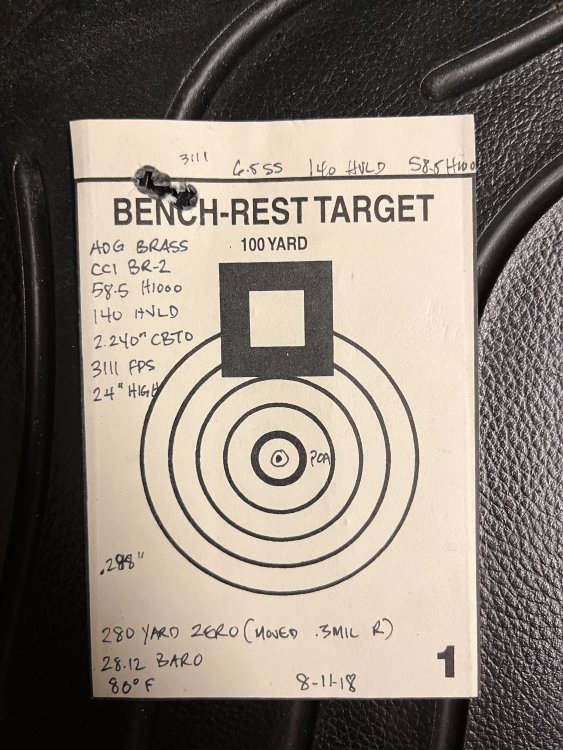 3111 6.5 SS 140 HVLD 58.5 H1000
BENCH-REST TARGET
100 YARD
ADG BRASS
CCI BR-2
58.5 H1000
140 HVLD
2.240" CBTO
3111 FPS
2.4" HIGH
POA
280 YARD ZERO (MOVED .3MIL R)
28.12 BARO
80° F
8-11-18
1